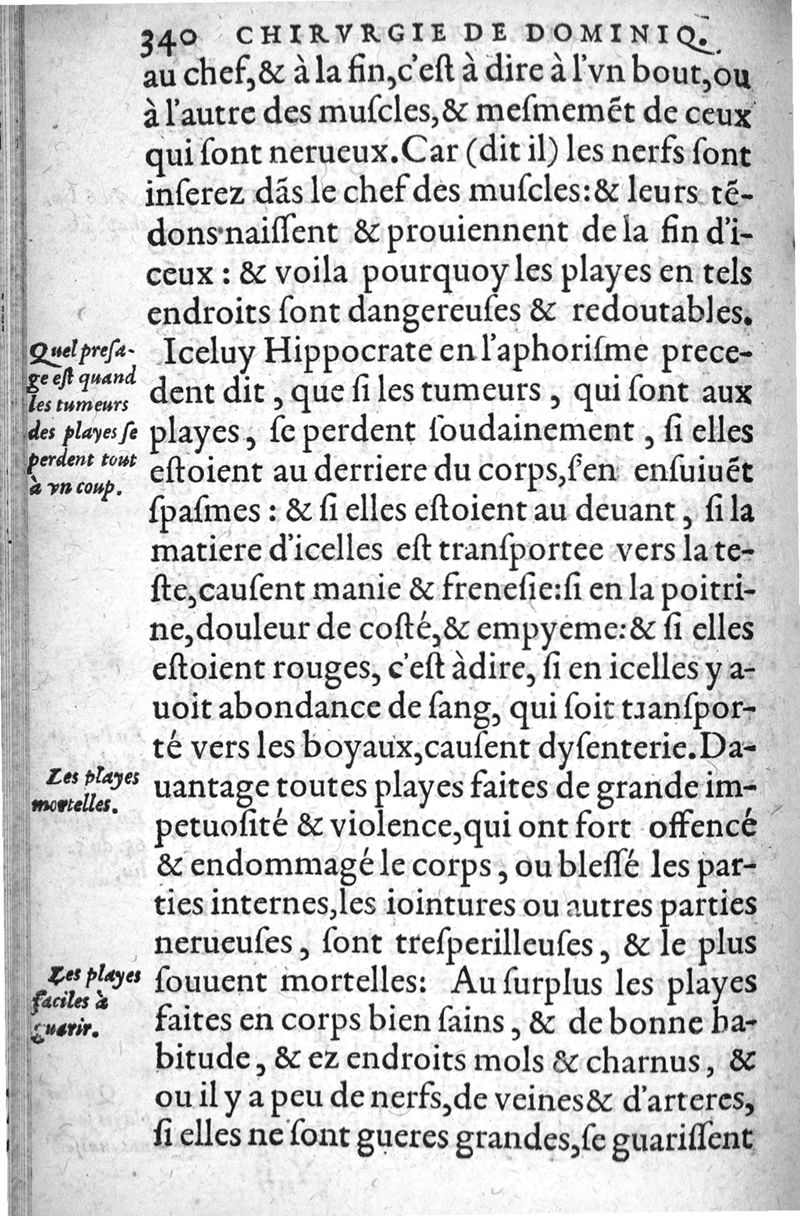 340 CHIRVRGIE DE DOMINIQ.
au chef,& à la fin,c'eſt à dire à l'vn bout,ou
à l'autre des muſcles,& meſmemẽt de ceux
qui ſont nerueux.Car (dit il) les nerfs ſont
inſerez dãs le chef des muſcles:& leurs tẽ-
dons naiſſent & prouiennent de la fin d'i-
ceux : & voila pourquoy les playes en tels
endroits ſont dangereuſes & redoutables.
Quel preſa-
ge eſt quand
les tumeurs
des playes ſe
perdent tout
à vn coup.
Iceluy Hippocrate en l'aphoriſme prece-
dent dit , que ſi les tumeurs , qui ſont aux
playes , ſe perdent ſoudainement , ſi elles
eſtoient au derriere du corps,ſ'en enſuiuẽt
ſpaſmes : & ſi elles eſtoient au deuant , ſi la
matiere d'icelles eſt tranſportee vers la te-
ſte,cauſent manie & freneſie:ſi en la poitri-
ne,douleur de coſté,& empyeme:& ſi elles
eſtoient rouges, c'eſt àdire, ſi en icelles y a-
uoit abondance de ſang, qui ſoit tranſpor-
té vers les boyaux,cauſent dyſenterie.Da-
Les playes
mortelles.
uantage toutes playes faites de grande im-
petuoſité & violence,qui ont fort offencé
& endommagé le corps , ou bleſſé les par-
ties internes,les iointures ou autres parties
nerueuſes , ſont treſperilleuſes , & le plus
Les playes
faciles à
guarir.
ſouuent mortelles: Au ſurplus les playes
faites en corps bien ſains , & de bonne ha-
bitude , & ez endroits mols & charnus , &
ou il y a peu de nerfs,de veines& d'arteres,
ſi elles ne ſont gueres grandes,ſe guariſſent